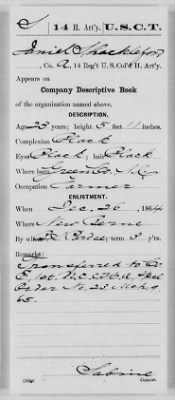 S | 14 H. Art'y. | U.S.C.T.
Daniel Shackleford
, Co. A, 14 Reg't U.S. Col'd H. Art'y.
Appears on
Company Descriptive Book
of the organization named above.
DESCRIPTION.
Age 23 years; height 5 feet 11 inches.
Complexion Black
Eyes Black; hair Black
Where born Green Co. N.C.
Occupation Farmer
ENLISTMENT.
When Dec. 26, 1864
Where New Berne
By whom term 3 y'rs.
Remarks:
Transferred to Co
1st. U.S.C.
Order No. 23.
65.
Sabine
Copyist.